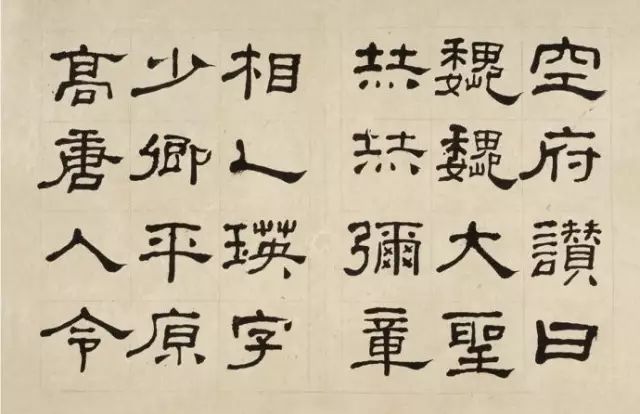 空府讚曰
魏魏大聖
赫赫彌章
相乙瑛字
少卿平原
高唐人令